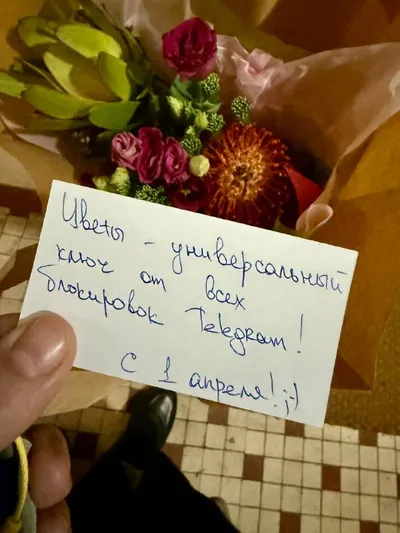 Цветы - универсальный
ключ от всех
блокировок Telegram!
С 1 апреля! ;-)